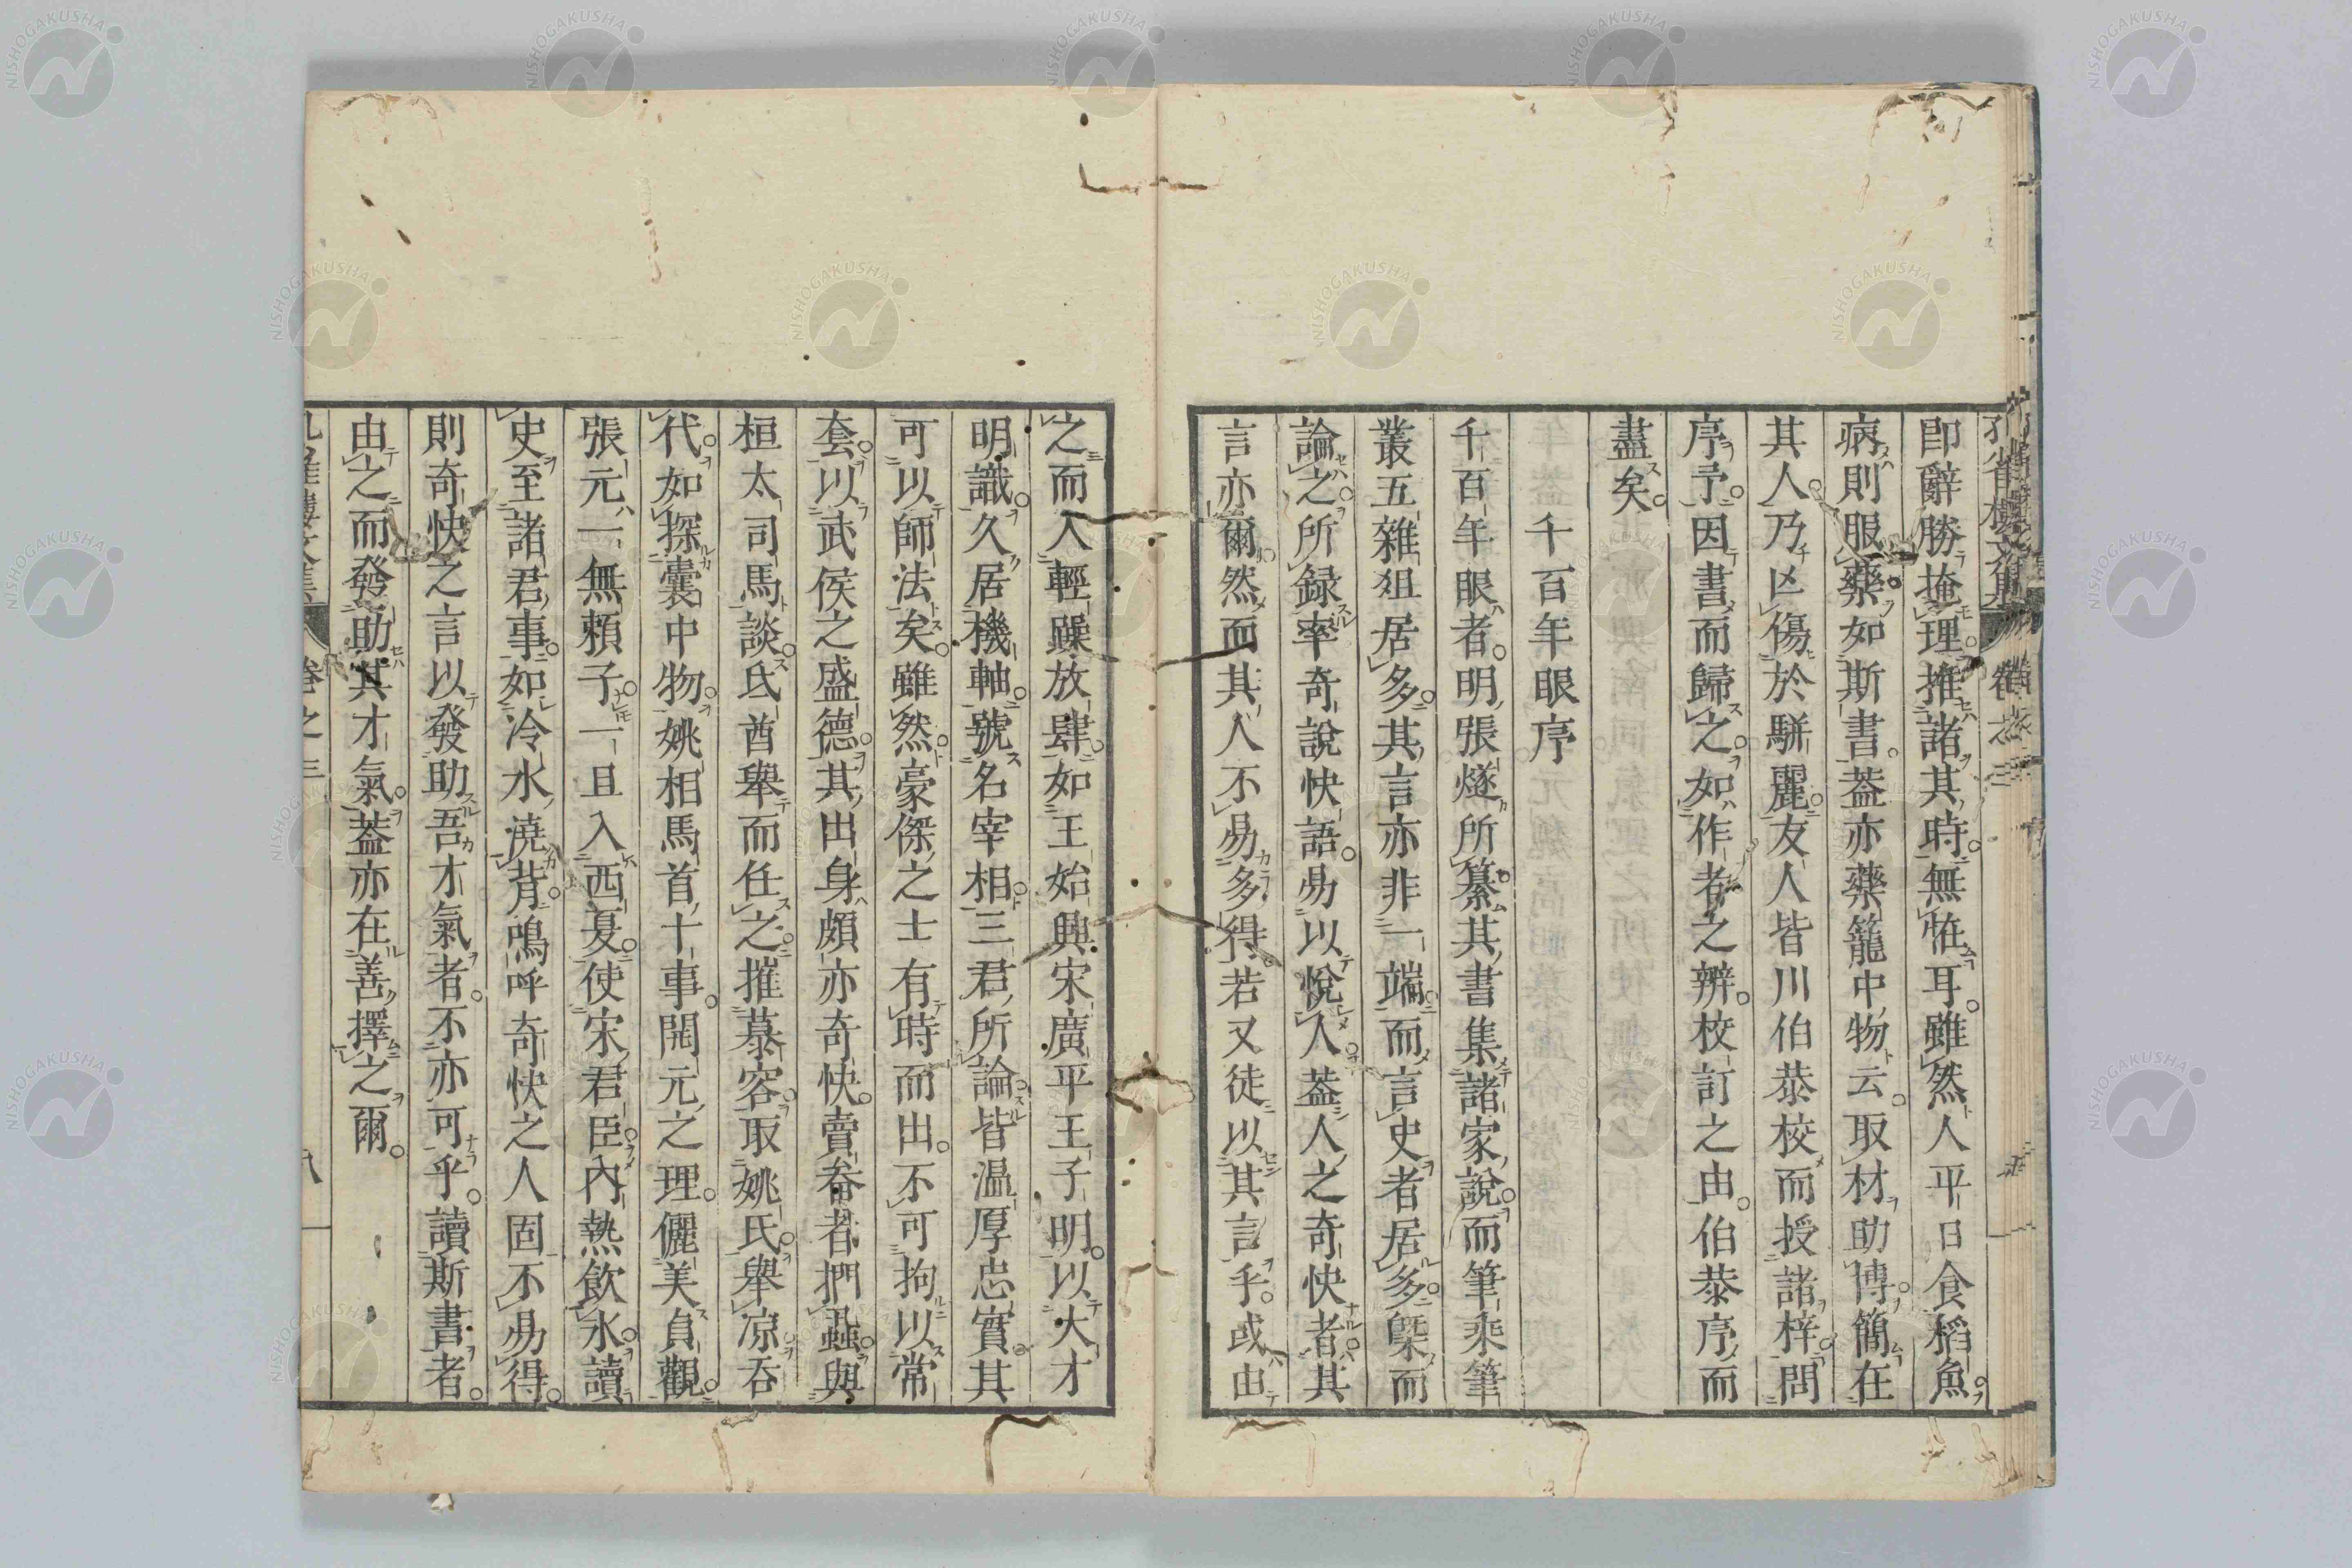 即辭勝掩理推諸其時無恠耳。雖然人平日食稻魚。
病則服藥。如斯書。葢亦藥籠中物云。取材助博。簡在
其人。乃亾傷於駢麗。友人皆川伯恭校而授諸梓。問
序予。因書而歸之。如作者之辨。校訂之由。伯恭序而
盡矣。
千百年眼序
千百年眼者。明張燧所纂。其書集諸家說。而筆乘筆
叢五雜俎居多。其言亦非一端。而言史者居多。槩而
論之。所録率奇說快語。易以悅人。葢人之奇快者。其
言亦爾。然而其人不易多得。若又徒以其言乎。或由
之而入輕躁放肆。如王始興宋廣平王子明。以大才
明識。久居機軸。號名宰相。三君所論皆温厚忠實。其
可以師法矣。雖然。豪傑之士有時而出。不可拘以常
套。以武侯之盛德。其出身頗亦奇快。賣畚者捫蝨與
桓太司馬談。氐酋舉而任之。摧慕容取姚氏。舉凉吞
代。如探囊中物。姚相馬首十事。開元之理。儷美貞觀。
張元一無賴子。一且入西夏。使宋君臣内熱飲氷。讀
史至諸君事。如冷水澆背。嗚呼奇快之人固不易得。
則奇快之言以發助吾才氣者。不亦可乎。讀斯書者。
由之而發助其才氣。葢亦在善擇之爾。
孔雀樓文集 卷之三
八